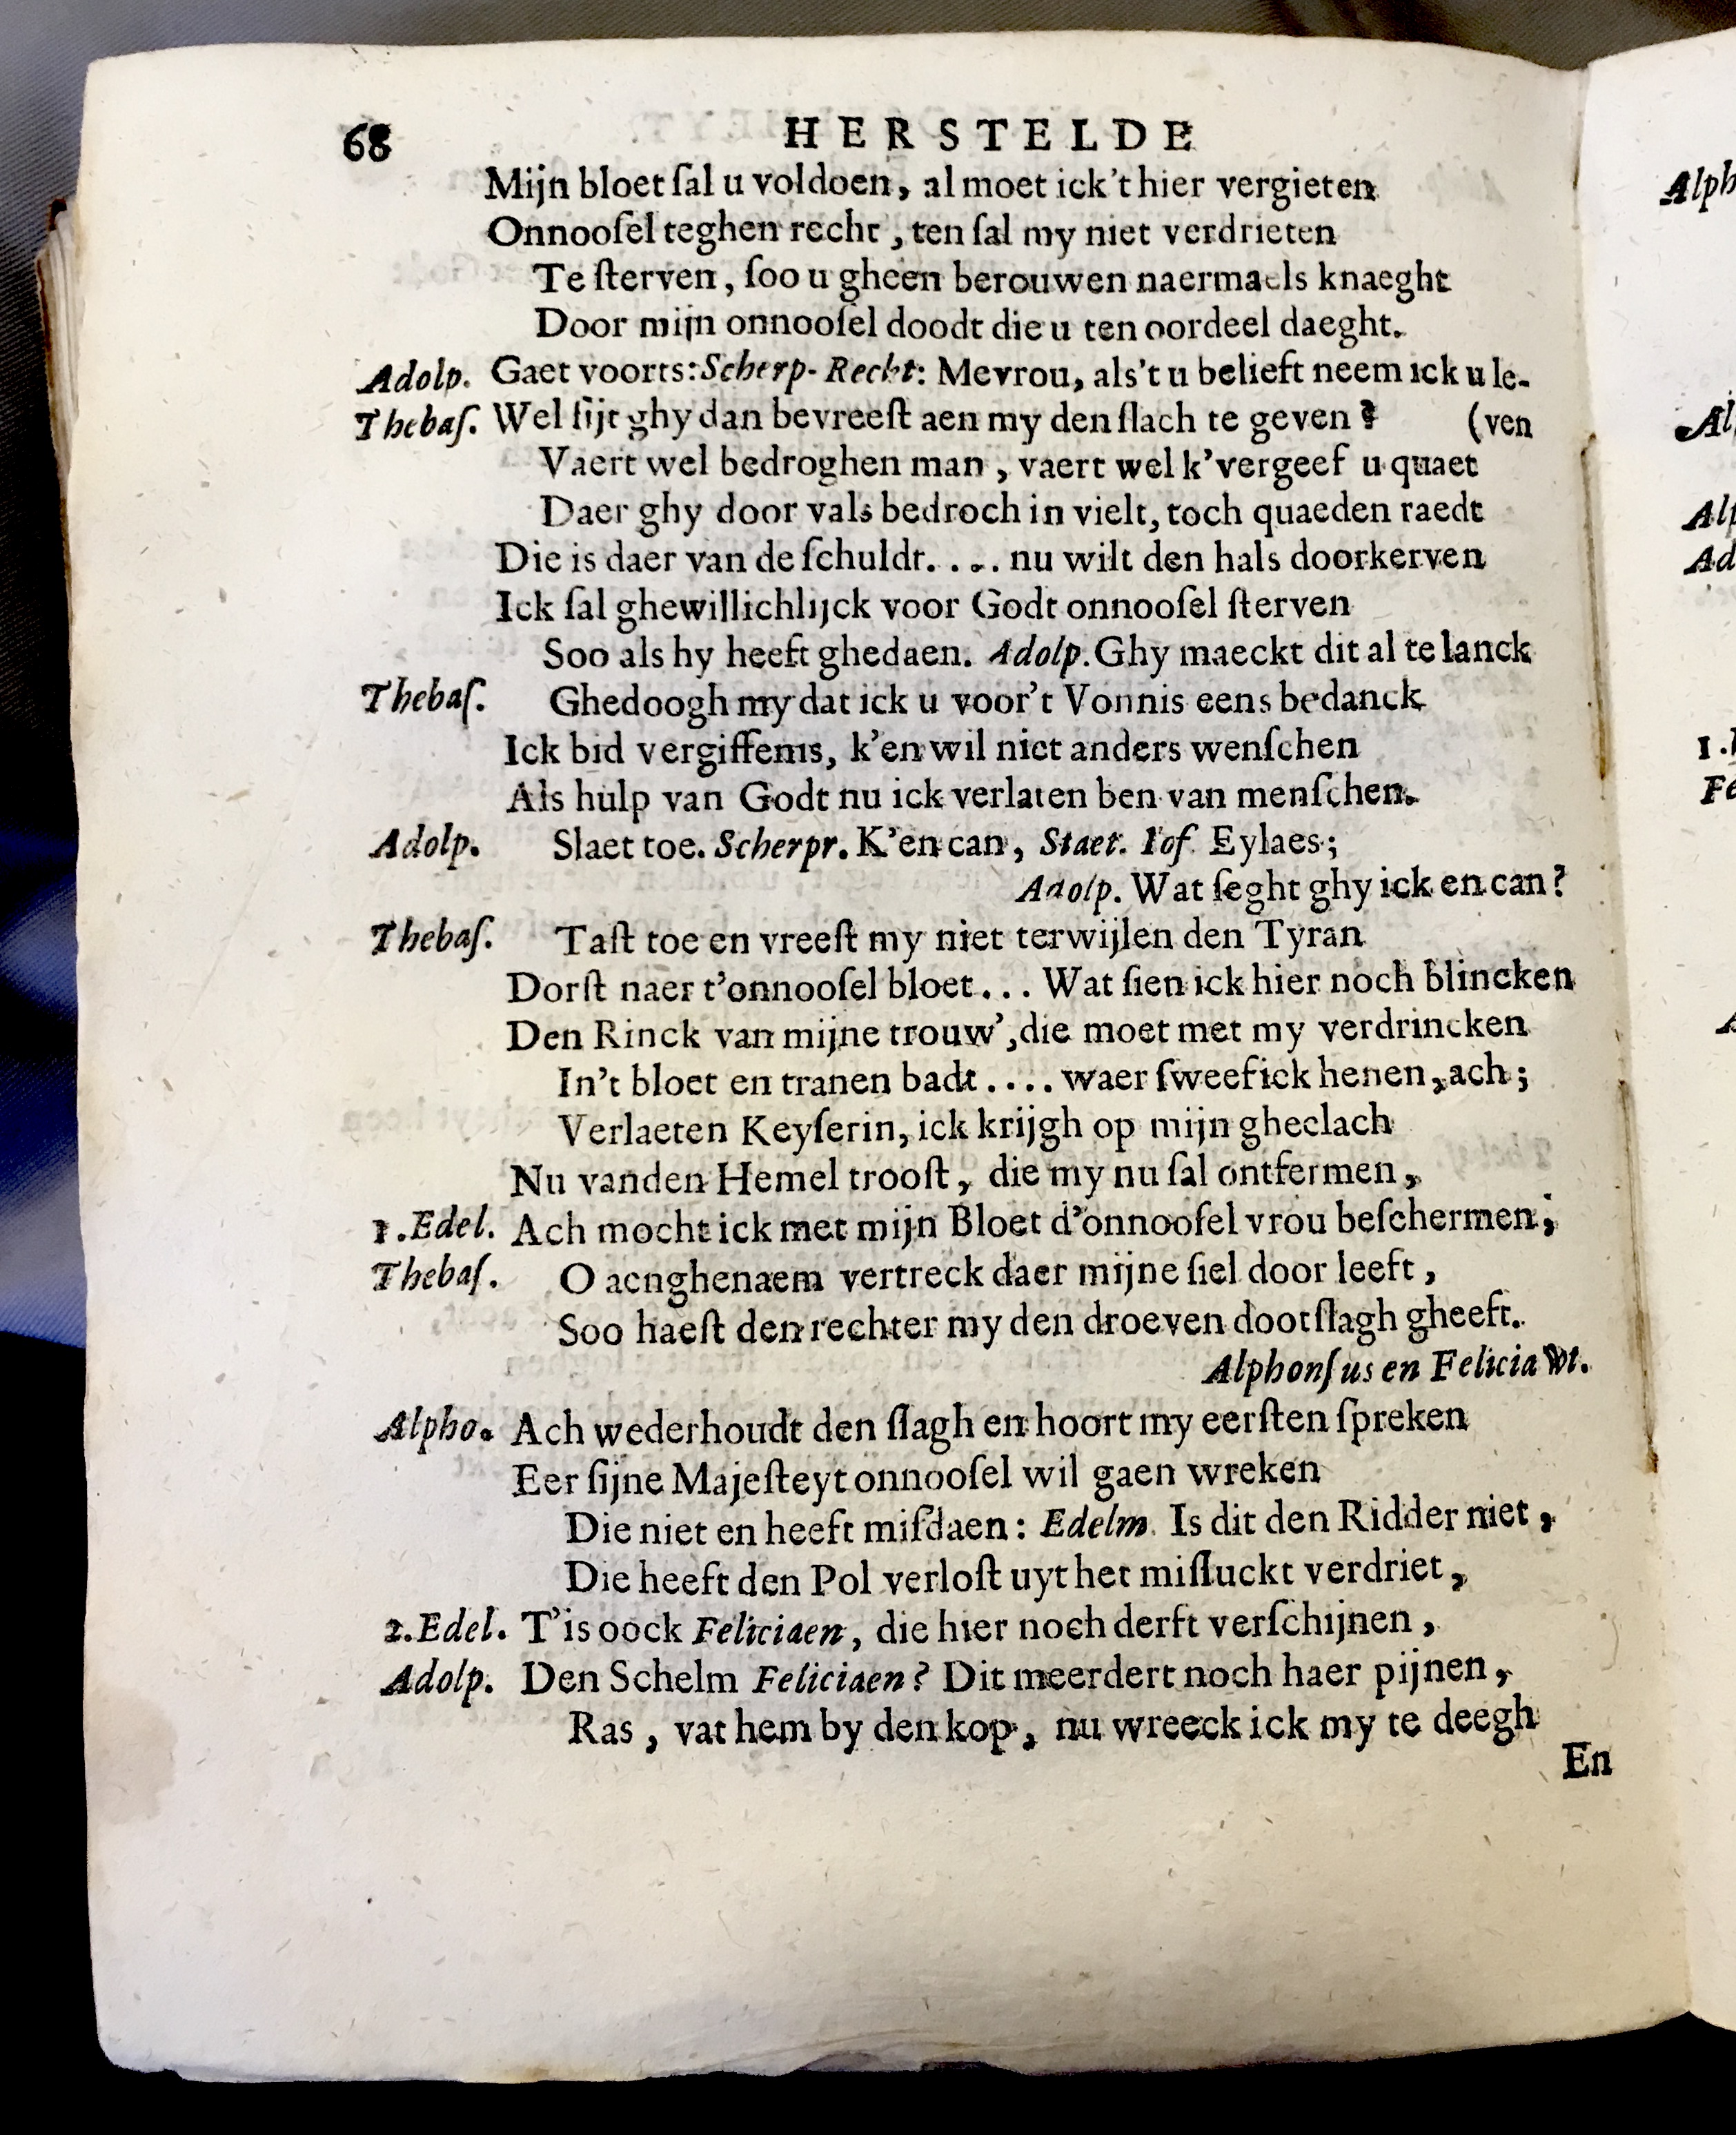 68 HERSTELDE
Mijn bloet ſal u voldoen, al moet ick't hier vergieten
Onnooſel teghen recht, ten ſal my niet verdrieten
Te ſterven, ſoo u gheen berouwen naermaels knaeght
Door mijn onnooſel doodt die u ten oordeel daeght.
Adolp. Gaet voorts: Scherp-Recht: Mevrou, als't u belieft neem ick u le-
Thebaſ. Wel ſijt ghy dan bevreeſt aen my den ſlach te geven? (ven
Vaert wel bedroghen man, vaert wel k'vergeef u quaet
Daer ghy door vals bedroch in vielt, toch quaeden raedt
Die is daer van de ſchuldt.... nu wilt den hals doorkerven
Ick ſal ghewillichlijck voor Godt onnooſel ſterven
Soo als hy heeft ghedaen. Adolp. Ghy maeckt dit al te lanck
Thebaſ. Ghedoogh my dat ick u voor't Vonnis eens bedanck
Ick bid vergiffenis, k'en wil niet anders wenſchen
Als hulp van Godt nu ick verlaten ben van menſchen.
Adolp. Slaet toe. Scherpr. K'en can, Staet. Iof. Eylaes;
Adolp. Wat ſeght ghy ick en can?
Thebaſ. Taſt toe en vreeſt my niet terwijlen den Tyran
Dorſt naer t'onnooſel bloet... Wat ſien ick hier noch blincken
Den Rinck van mijne trouw', die moet met my verdrincken
In't bloet en tranen badt.... waer ſweef ick henen, ach;
Verlaeten Keyſerin, ick krijgh op mijn gheclach
Nu vanden Hemel trooſt, die my nu ſal ontfermen,
1.Edel. Ach mocht ick met mijn Bloet d'onnooſel vrou beſchermen;
Thebaſ. O aenghenaem vertreck daer mijne ſiel door leeft,
Soo haeſt den rechter my den droeven dootſlagh gheeft.
Alphonſus en Felicia Wt.
Alpho. Ach wederhoudt den ſlagh en hoort my eerſten ſpreken
Eer ſijne Majeſteyt onnooſel wil gaen wreken
Die niet en heeft miſdaen: Edelm. Is dit den Ridder niet,
Die heeft den Pol verloſt uyt het miſluckt verdriet,
2.Edel. T'is oock Feliciaen, die hier noch derft verſchijnen,
Adolp. Den Schelm Feliciaen? Dit meerdert noch haer pijnen,
Ras, vat hem by den kop, nu wreeck ick my te deegh
En
Alph
Al
Alp
Ad
1.
Fe